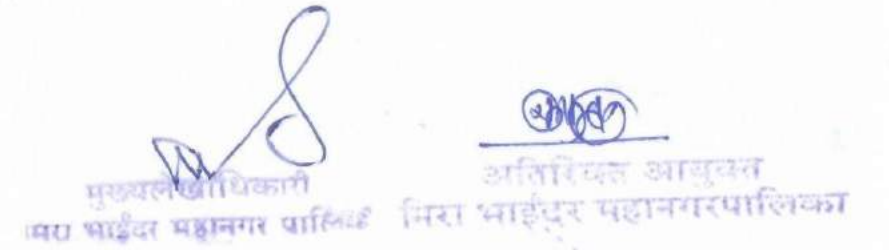 मुख्यलेखाधिकारी
मिरा भाईंदर महानगर पालिका
अतिरिक्त आयुक्त
मिरा भाईंदर महानगरपालिका